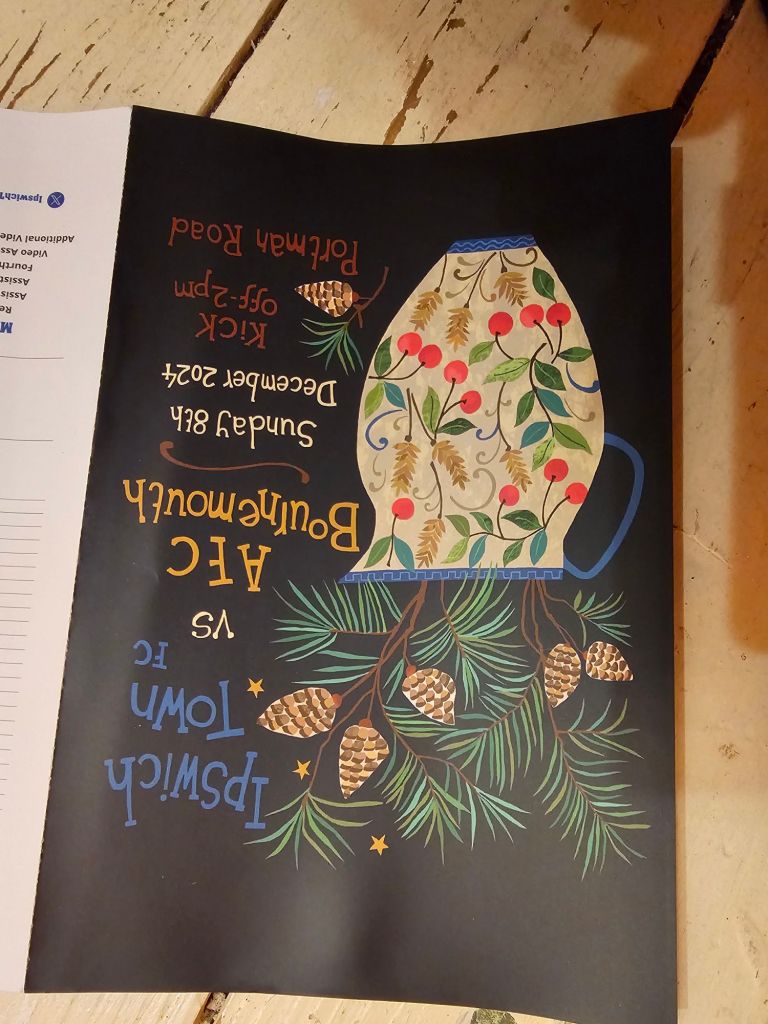 Ipswich
Town
FC
vs
AFC
Bournemouth
Sunday 8th
December 2024
Kick
off-2pm
Portman Road
M
Re
Assis
Assist
Fourth
Video Ass
Additional Vide
IpswichT